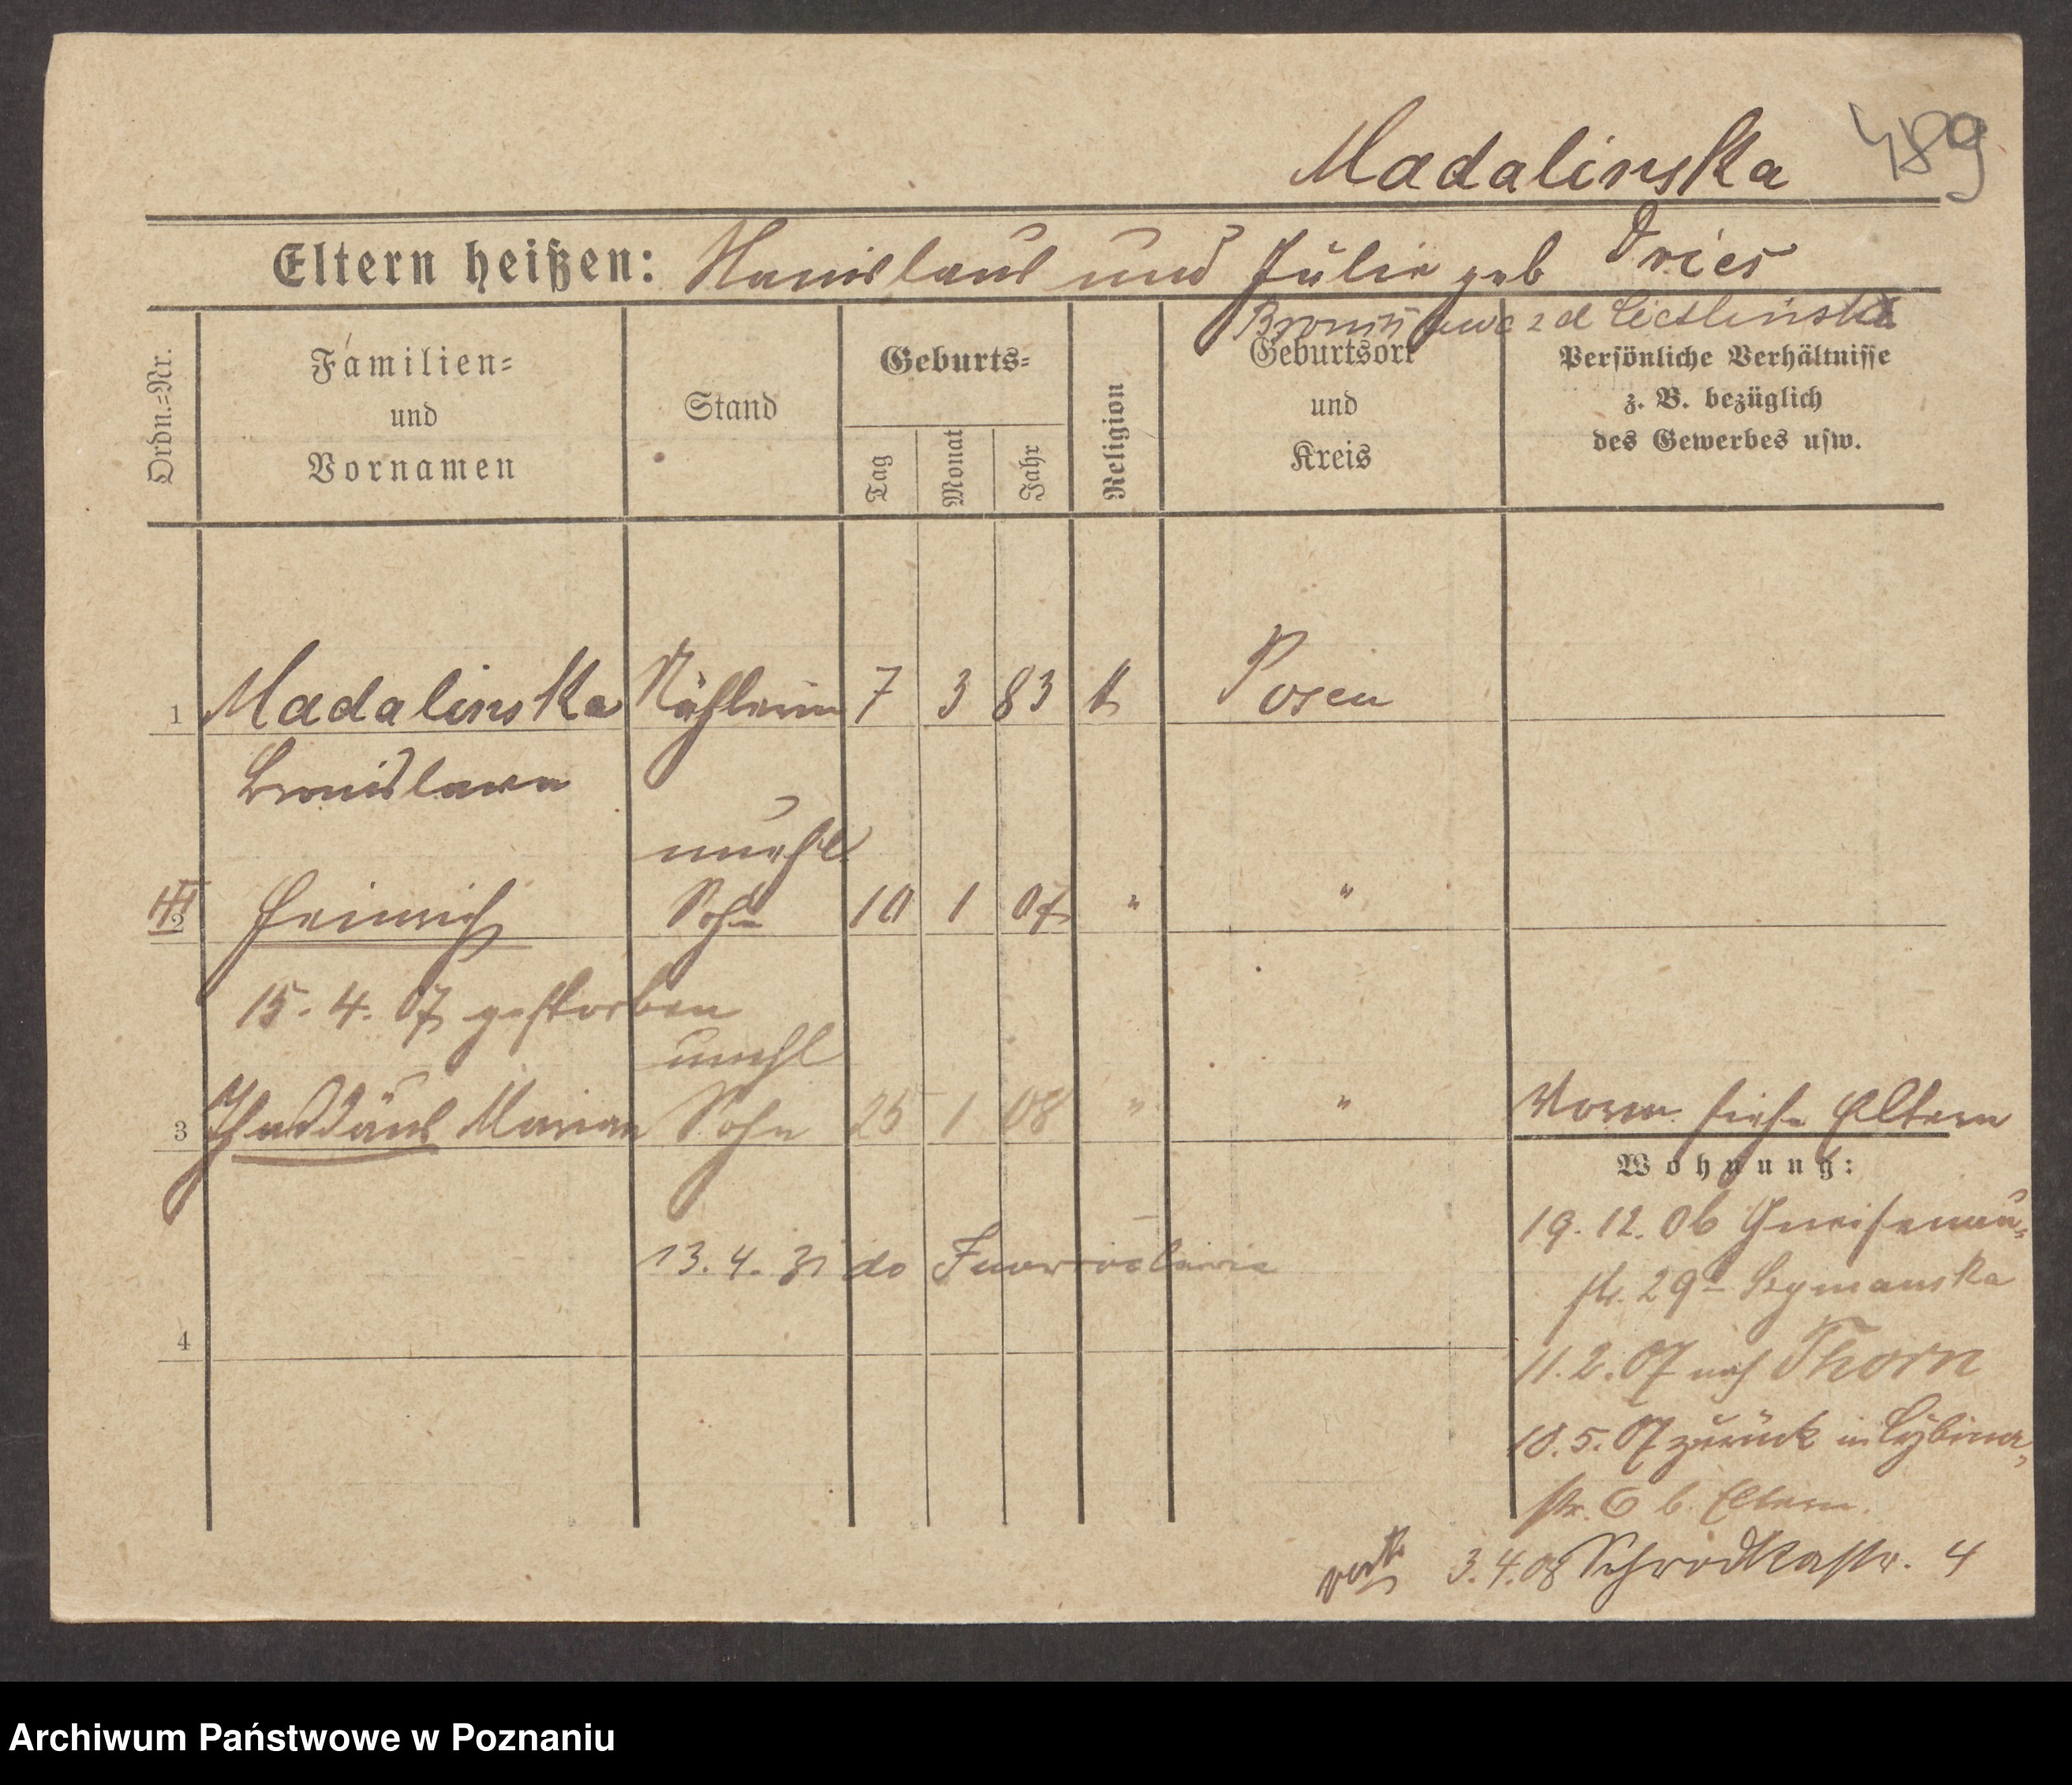 Madalinska 489
Eltern heißen: Stanislaus und Julie geb Dries
Ordn.=Nr.
Familien=
und
Vornamen
Stand
Geburts=
Tag
Monat
Jahr
Religion
Geburtsort
und
Kreis
Persönliche Verhältnisse
z. B. bezüglich
des Gewerbes usw.
1 Madalinska Nähterin 7 3 83 k Posen
Bronislawa
unehl
2 Heinrich Sohn 10 1 07 " "
15. 4. 07 gestorben
unehl
3 Thaddäus Marian Sohn 25 1 08 " "
Vorm. siehe Eltern
Wohnung:
19. 12. 06 Gneisenau=
str. 29 Szymanska
13. 4. 31 do
4
11. 2. 07 nach Thorn
18. 5. 07 zurück in Cybina=
str. 6 b. Eltern.
3. 4. 08 Schrodkastr. 4
Archiwum Państwowe w Poznaniu